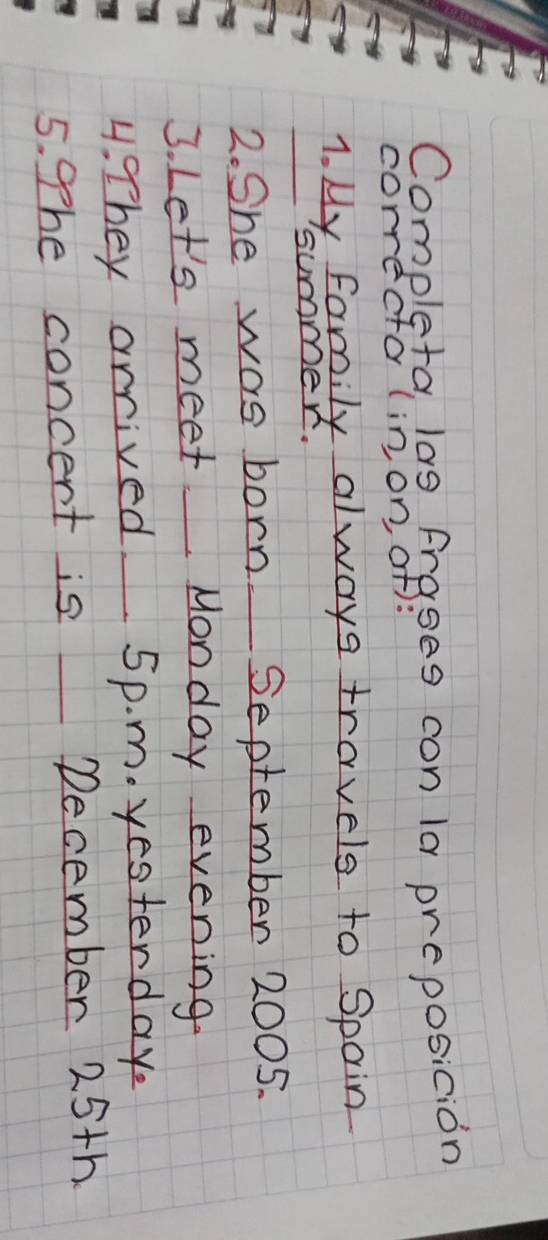 Completa las frases con la preposición
correcta (in, on, at):
1. My family always travels to Spain
___ summer.
2. She was born ___ September 2005.
3. Let's meet ___ Monday evening.
4. They arrived ___ 5p.m. yesterday.
5. The concert is ___ December 25th.